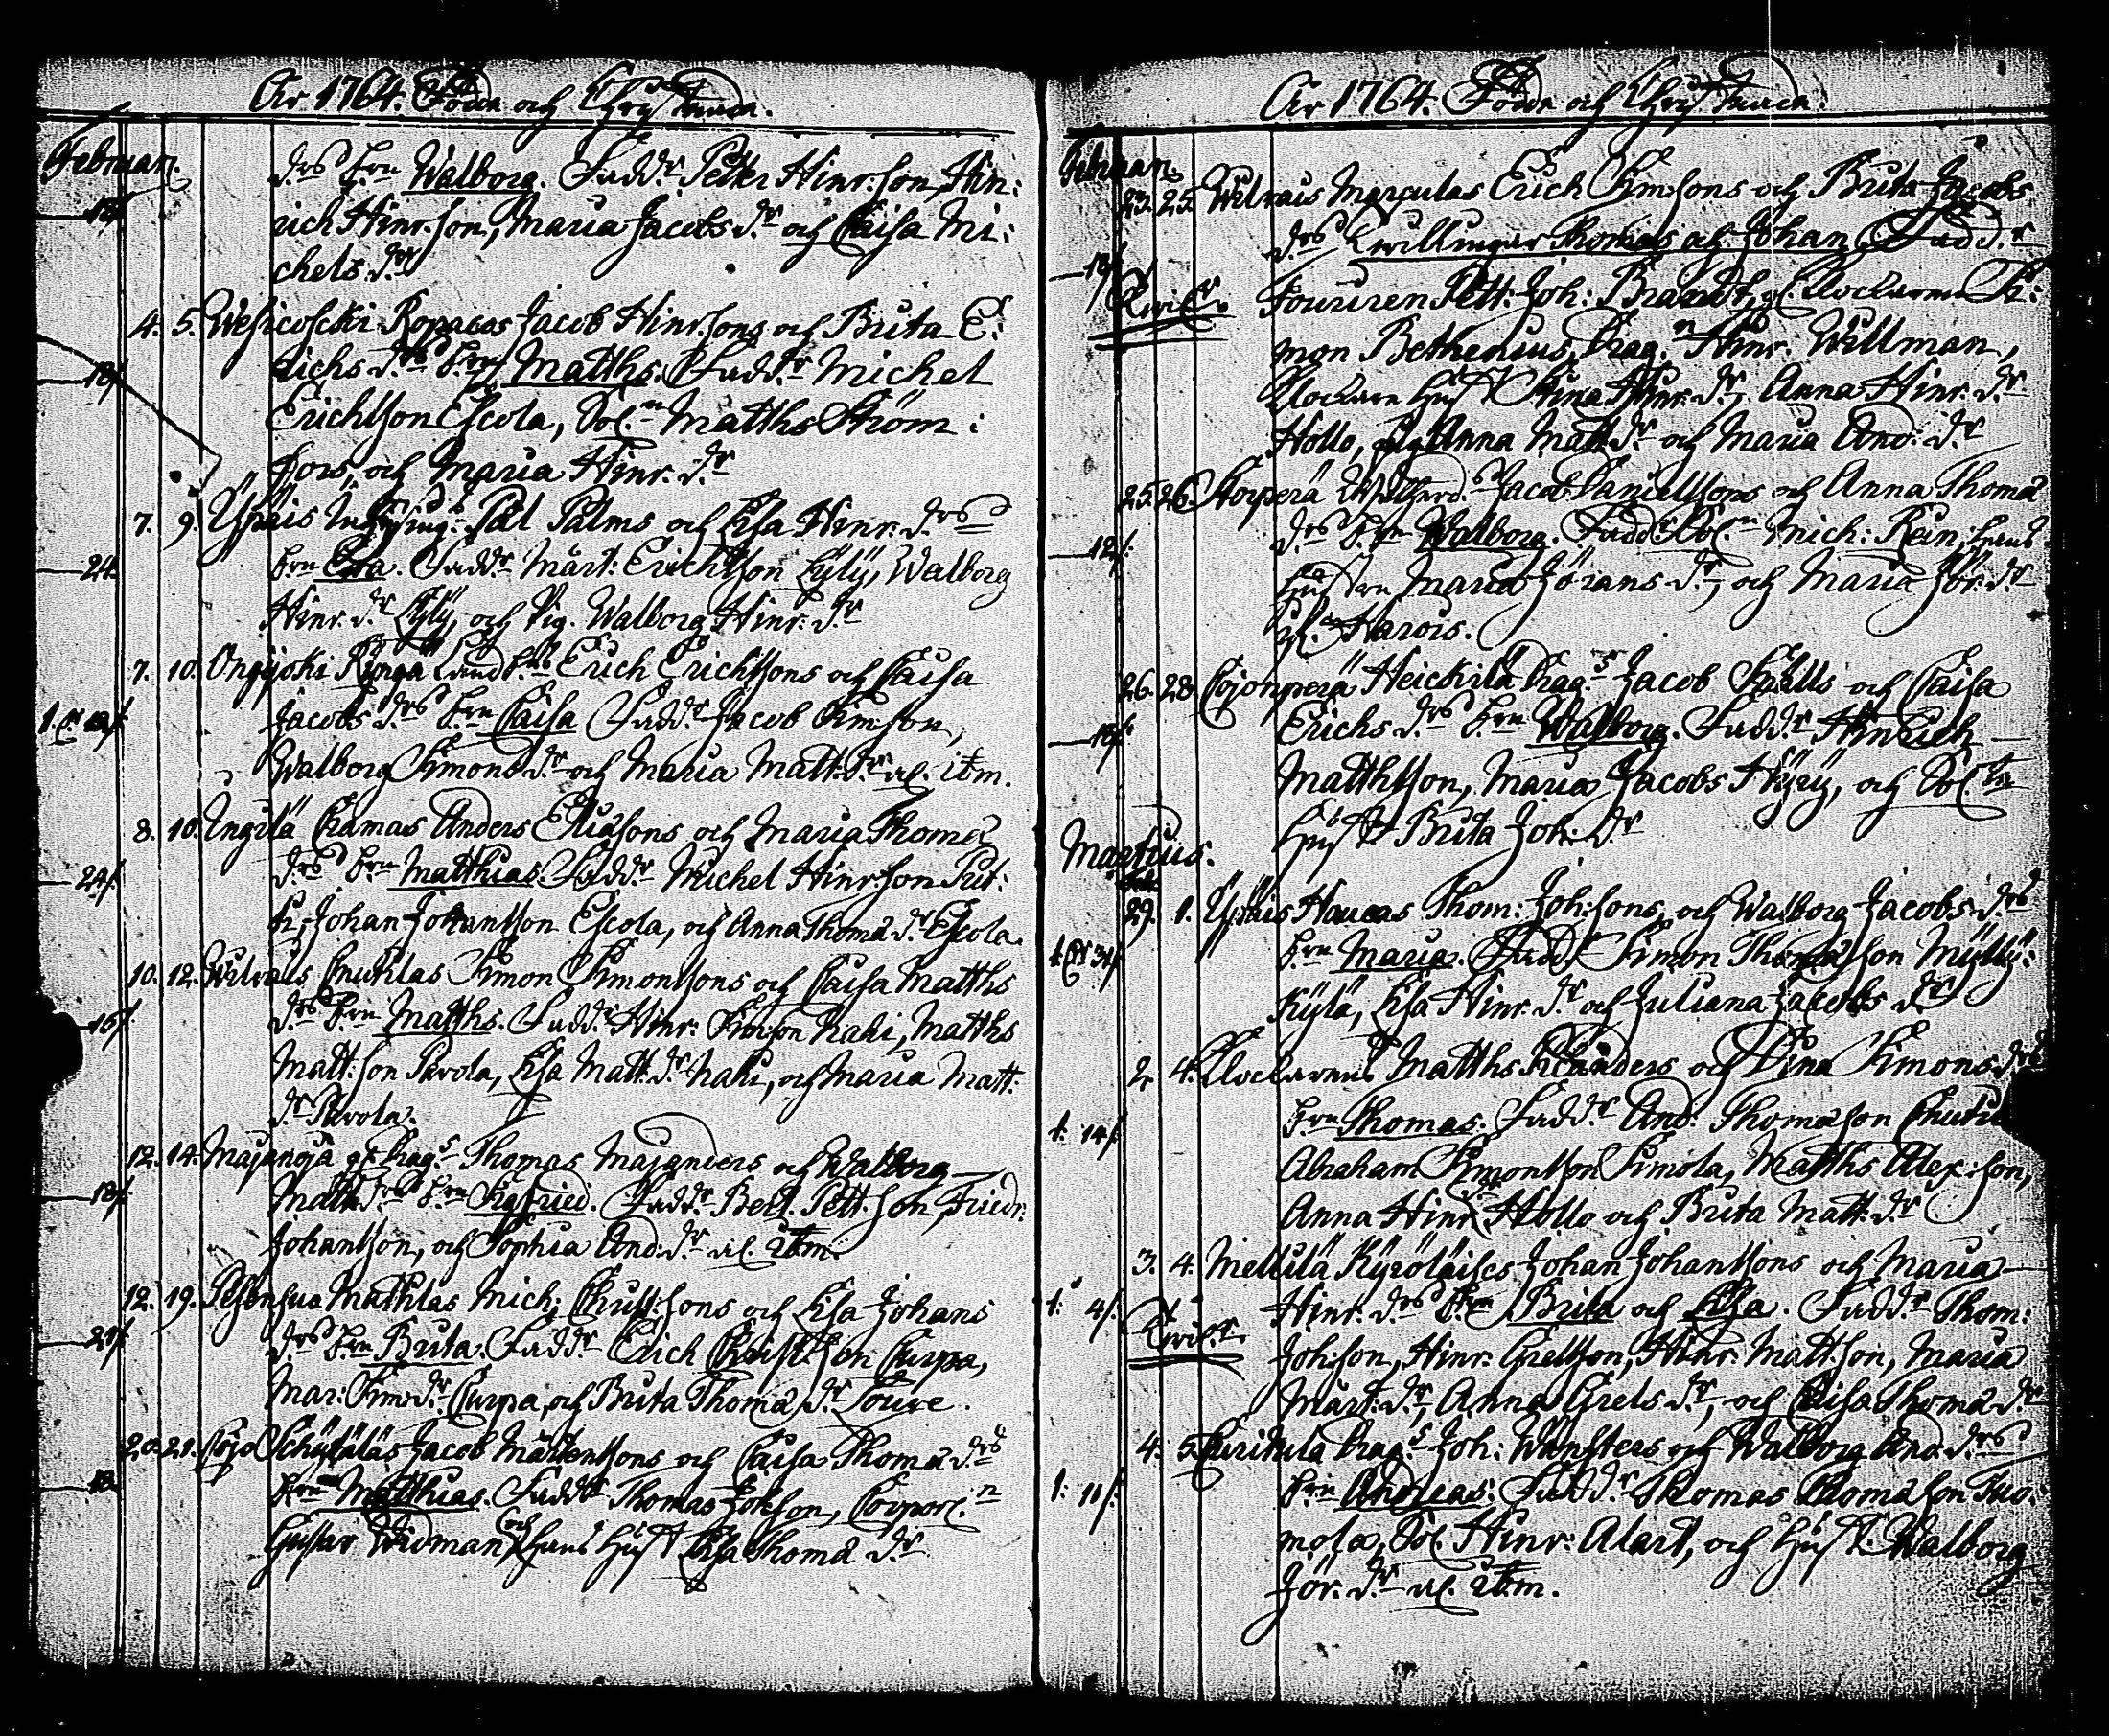 År 1764. Födde och Christnade.
Februari.
d:rs b:rn Walborg. Fadd:r Petter Hinr:son, Hin:
rich Hinr:son, Maria Jacobs d:r och Caisa Mi:
chels d:r
4. 5. Wesicoscki Ropacas Jacob Hinr:sons och Brita E:
richs d:rs b:rn Matths. Fadd:r Michel
Erichsson Escola, Sol:n Matths Ström:
fors, och Maria Hinr. d:r
7. 9. Ypäis Pål Palms och Lisa Hinr. d:rs
24.
b:rn Eva. Fadd:r Mårt: Erichsson Kyly, Walborg
Hinr. d:r Kyly, och Pig. Walborg Hinr: d:r
7. 10. Ongijoki Erich Erichssons och Caisa
Jacobs d:rs b:rn Caisa Fadd:r Jacob Sim:son,
Walborg Simons d:r och Maria Matt: d:r
8. 10. Ungilä Anders Eliæsons och Maria Thomæ
24
d:rs b:rn Matthias. Fadd:r Michel Hinr:son
Johan Johansson Escola, och Anna Thomæ d:r Escola.
10. 12. Simon Simonssons och Caisa Matths
16
d:rs b:rn Matths. Fadd:r Hinr: Sim:son Naki, Matths
Matt:son Parola, Lisa Matt: d:r Naki, och Maria Matt:
d:r Parola.
12. 14. Majanoja Drag:s Thomas Majanders och Walborg
Matts d:rs b:rn Sigfried. Fadd:r Bert. Pett:son, Friedr.
Johansson, och Sophia And: d:r
12. 19. Mathlas Mich: sons och Lisa Johans
d:rs b:rn Brita. Fadd:r Erich Christ:son Curpa,
Mar: Sim: d:r Curpa, och Brita Thomæ d:r
20. 21. Cojo Jacob Mårtenssons och Caisa Thomæ d:rs
b:rn Matthias. Fadd:r Thomas Joh:son, Corporl:n
Gustav Widman, och hans hust. Lisa Thomæ d:r
År 1764. Födde och Christnade.
Februari
23. 25. Marculas Erich Sim:sons och Brita Jacobs
d:rs twillingar Thomas och Johan. Fadd:r
Twill:r
Fouriren Pett: Joh: Brandt, Clockaren Si:
mon Bethenius, Drag:n Hinr. Willman,
Clockare hust. Stina Hinr. d:r, Anna Hinr. d:r
Hollo, pig. Anna Matt: d:r och Maria And: d:r
25. 26. Korperä Jacob Danielssons och Anna Thomæ
12
d:rs b:rn Walborg. Fadd:r Sol:n Mich: Rein, hans
hustru Maria Jörans d:r, och Maria Jör. d:r
26. 28. Cojonperä Heickilä Drag:s Jacob Skälts och Caisa
Erichs d:rs b:rn Walborg. Fadd:r Hinrich
Matthsson, Maria Jacobs Hyry, och Sol:ns
hust. Brita Joh: d:r
Martius.
29. 1. Ypäis Haucas Thom: Joh:sons och Walborg Jacobs d:rs
b:rn Maria. Fadd:r Simon Thomæson Mylly:
Kylä, Lisa Hinr. d:r och Juliana Jacobs d:r
2. 4. Clockarens Matths Kilanders och Stina Simons d:rs
b:rn Thomas. Fadd:r And: Thomæson
Abraham Simonsson Simola, Matths Alex:son,
Anna Hinr. Hollo och Brita Matt: d:r
3. 4. Mellilä Kyröläises Johan Johanssons och Maria
Hinr. d:rs b:rn Brita och Lisa. Fadd:r Thom:
Twil:r
Joh:son, Hinr. Grelsson, Hinr. Matt:son, Maria
Mårt: d:r, Anna Grels d:r, och Caisa Thomæ d:r
4. 5. Drag:s Joh: Wansters och Walborg And: d:rs
b:rn Andreas. Fadd:r Thomas Thomæson Tuo:
mola, Sol. Hinr: Alart, och hust. Walborg
Jör. d:r